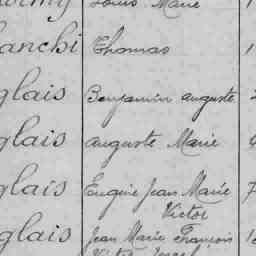 Louis Marie
anchi Thomas
glais Benjamin auguste
glais auguste Marie
glais Eugène Jean Marie
Victor
glais Jean Marie François
Victor